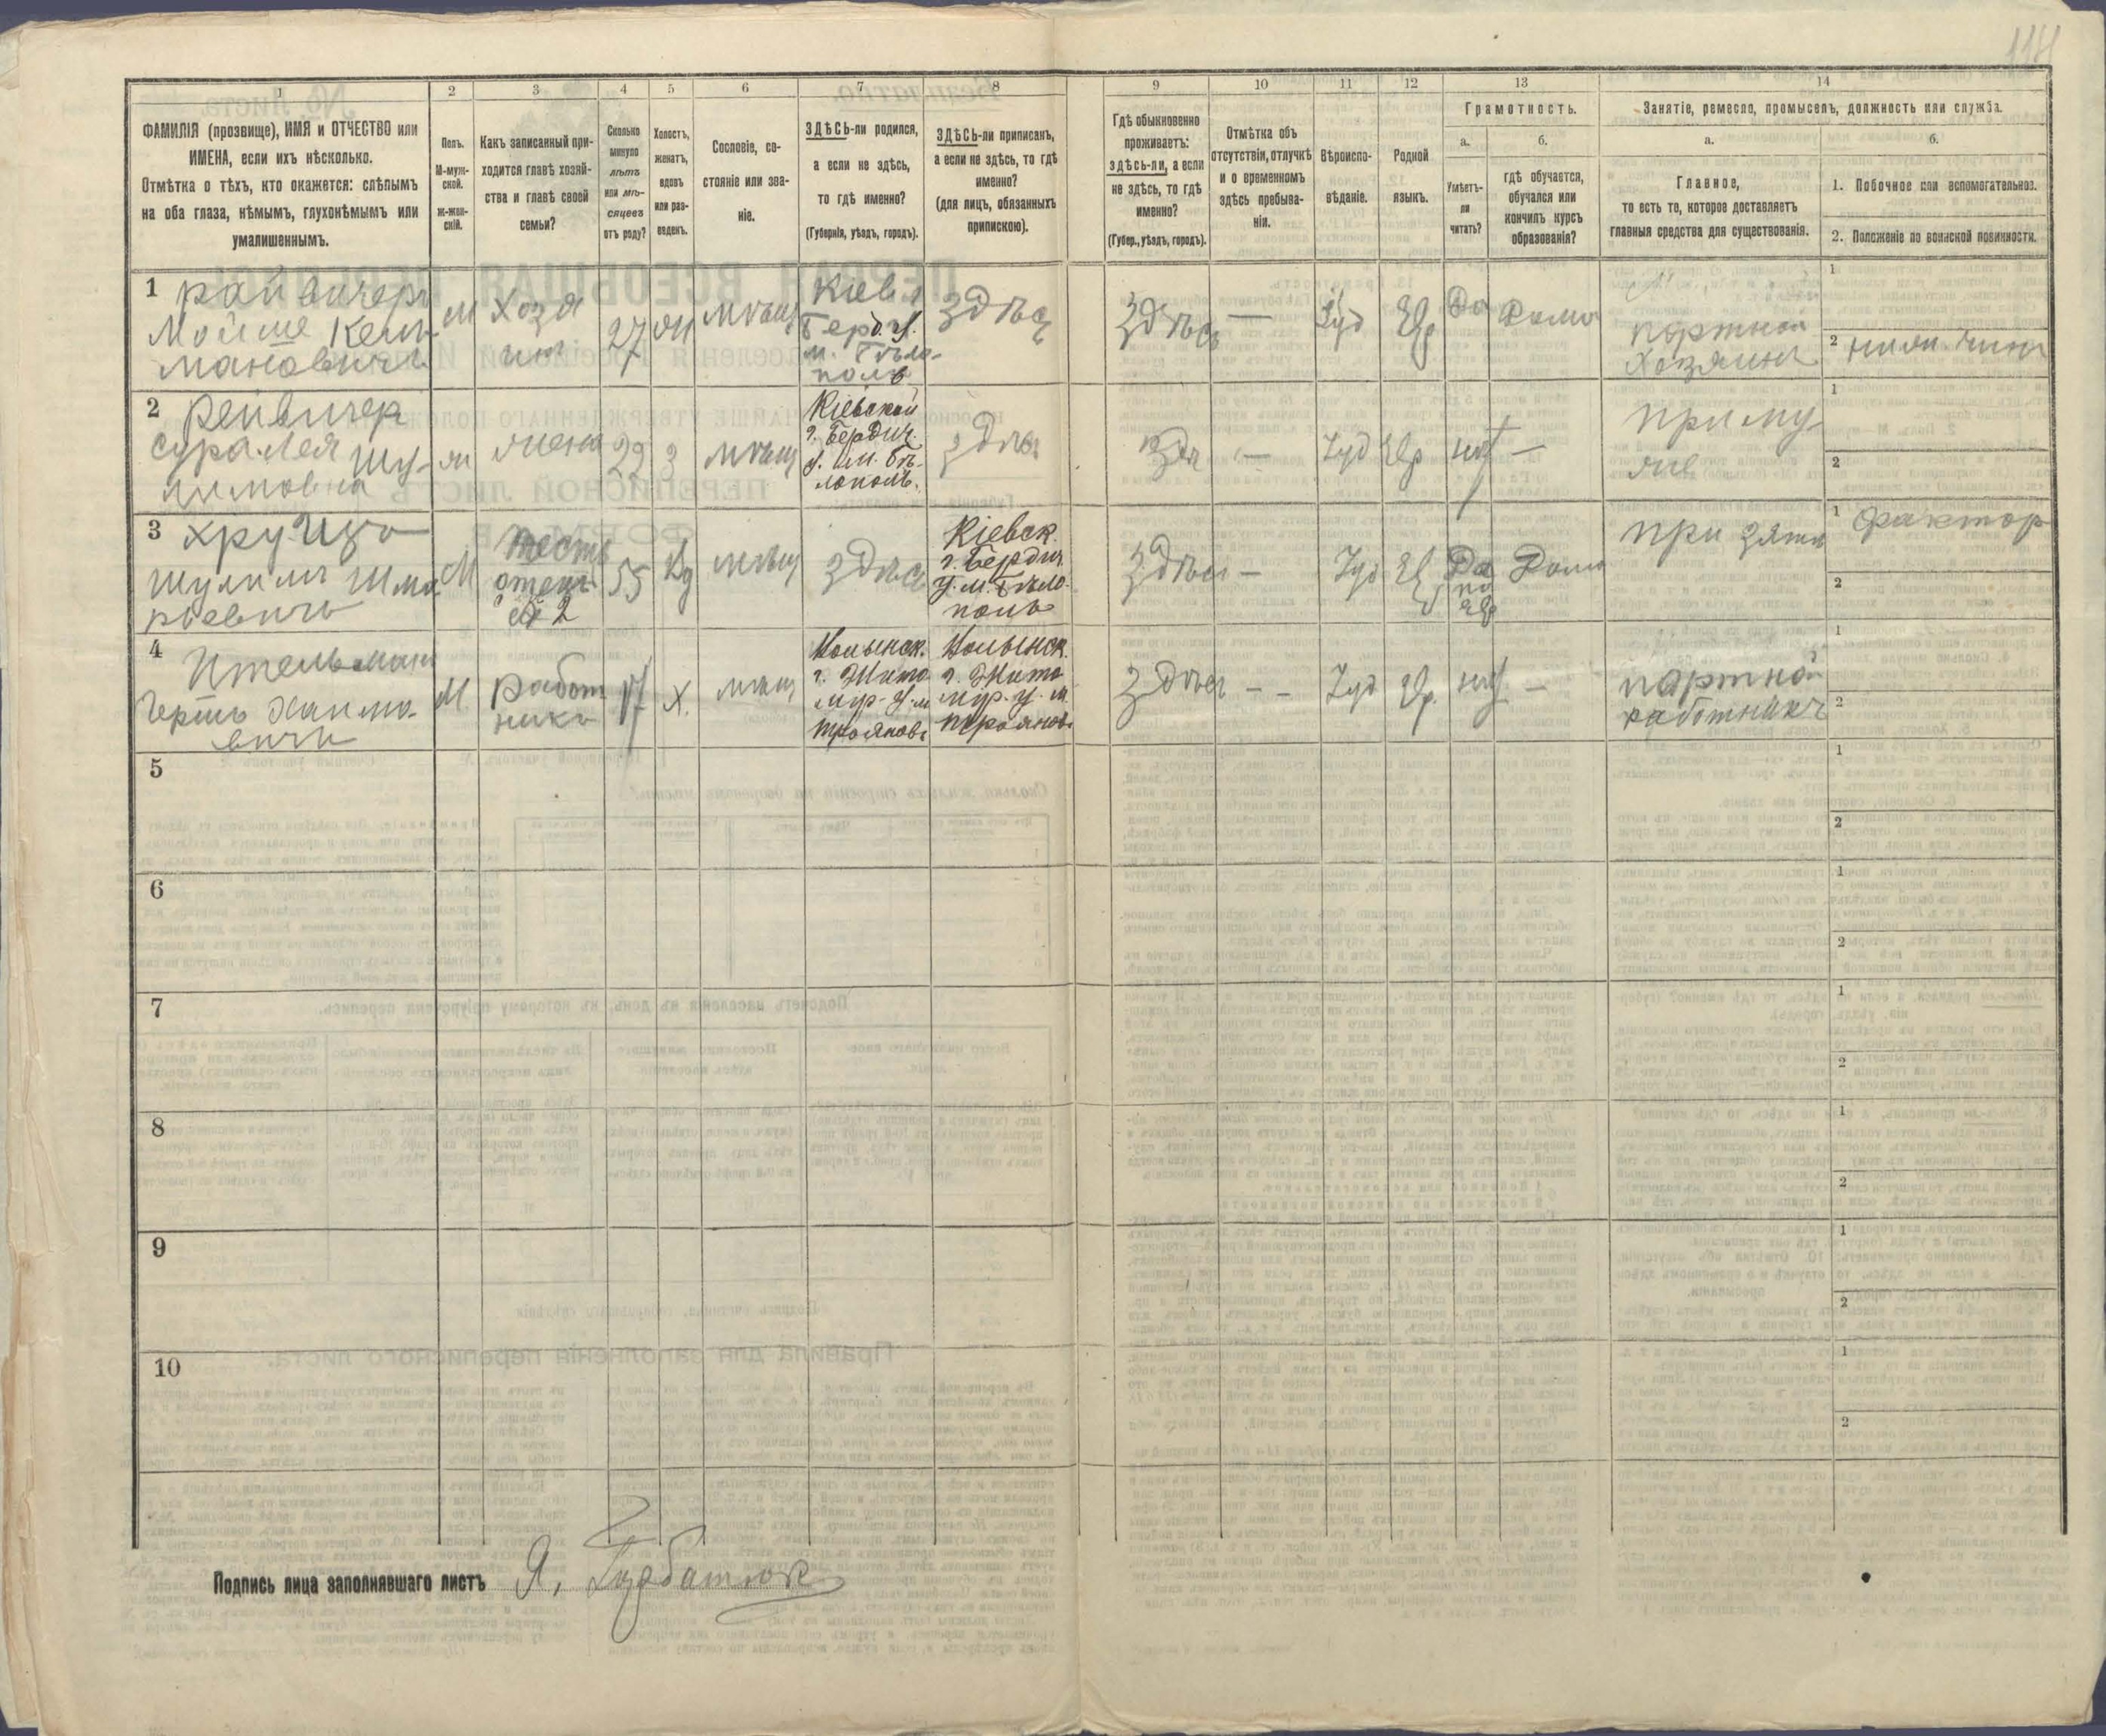 118
1
2
3
4
5
6
7
8
9
10
11
12
13
14
ФАМИЛІЯ (прозвище), ИМЯ и ОТЧЕСТВО или
ИМЕНА, если ихъ нѣсколько.
Отмѣтка о тѣхъ, кто окажется: слѣпымъ
на оба глаза, нѣмымъ, глухонѣмымъ или
умалишеннымъ.
Полъ.
М-муж-
ской.
ж-жен-
скій.
Какъ записанный при-
ходится главѣ хозяй-
ства и главѣ своей
семьи?
Сколько
минуло
лѣтъ
или мѣ-
сяцевъ
отъ роду?
Холостъ,
женатъ,
вдовъ
или раз-
веденъ.
Сословіе, со-
стояніе или зва-
ніе.
ЗДѢСЬ-ли родился,
а если не здѣсь,
то гдѣ именно?
(Губернія, уѣздъ, городъ).
ЗДѢСЬ-ли приписанъ,
а если не здѣсь, то гдѣ
именно?
(для лицъ, обязанныхъ
припискою).
Гдѣ обыкновенно
проживаетъ:
здѣсь-ли, а если
не здѣсь, то гдѣ
именно?
(Губер., уѣздъ, городъ).
Отмѣтка объ
отсутствіи, отлучкѣ
и о временномъ
здѣсь пребыва-
ніи.
Вѣроиспо-
вѣданіе.
Родной
языкъ.
Грамотность.
а.
Умѣетъ-
ли
читать?
б.
гдѣ обучается,
обучался или
кончилъ курсъ
образованія?
Занятіе, ремесло, промыселъ, должность или служба.
а.
Главное,
то есть то, которое доставляетъ
главныя средства для существованія.
б.
1. Побочное или вспомогательное.
2. Положеніе по воинской повинности.
1
Мойше Кель-
мановичъ
м
Хозя
инъ
27
жн
мѣщ
Кіев. г
Берд. у.
м. Бѣло-
поль
здѣсь
здѣсь
—
Іуд
Евр
Да
Дома
портной
хозяинъ
1
2
2
Рейвичер
Сура-Лея Шу-
лимовна
жн
жена
22
З
мѣщ
Кіевской
г. Бердич.
у. м. Бѣ-
лополь.
здѣсь
здѣсь
—
Іуд
Евр
нѣт
—
при му-
же
1
2
3
Шулимъ Шма
рьевичъ
М
тесть
отецъ
№ 2
55
Вд
мѣщ
здѣсь
Кіевск.
г. Бердич
у. м. Бѣло-
поль
здѣсь
—
Іуд
Евр
Да
по
евр
Дома
при зяте
1 фактор
2
4
Ительман
Герш Хаимо-
вичъ
М
работ
никъ
17
х.
мѣщ
Волынск.
г. Жито
мір. у. м
Трояновъ
Волынск.
г. Жито
мір. у. м.
Трояновъ
здѣсь
— –
Іуд
Евр.
нѣт
—
портной
работникъ
1
2
5
1
2
6
1
2
7
1
2
8
1
2
9
1
2
10
1
2
Подпись лица заполнявшаго листъ